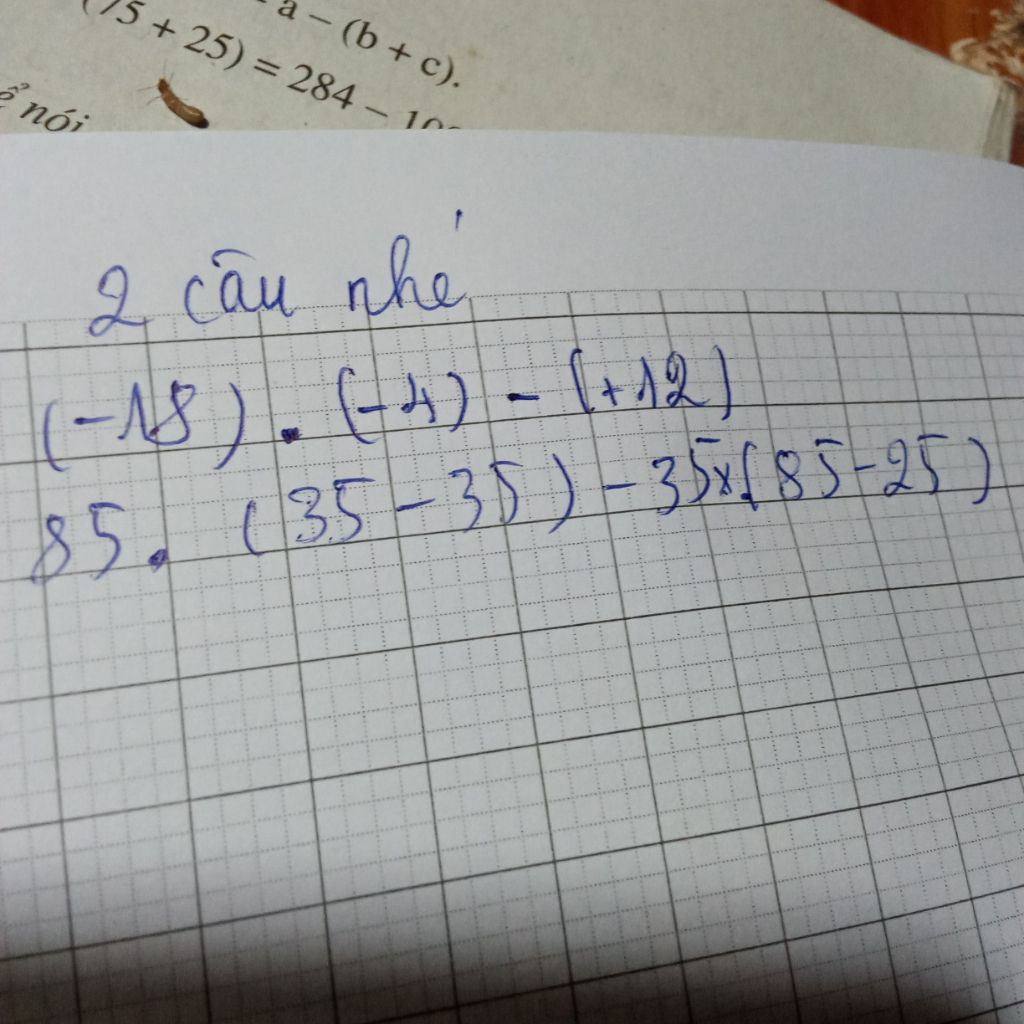 a – (b + c).
75 + 25) = 284 –
nói
2 câu nhé
(-18) . (-4) - (+12)
85. (35 - 35) - 35x(85-25)